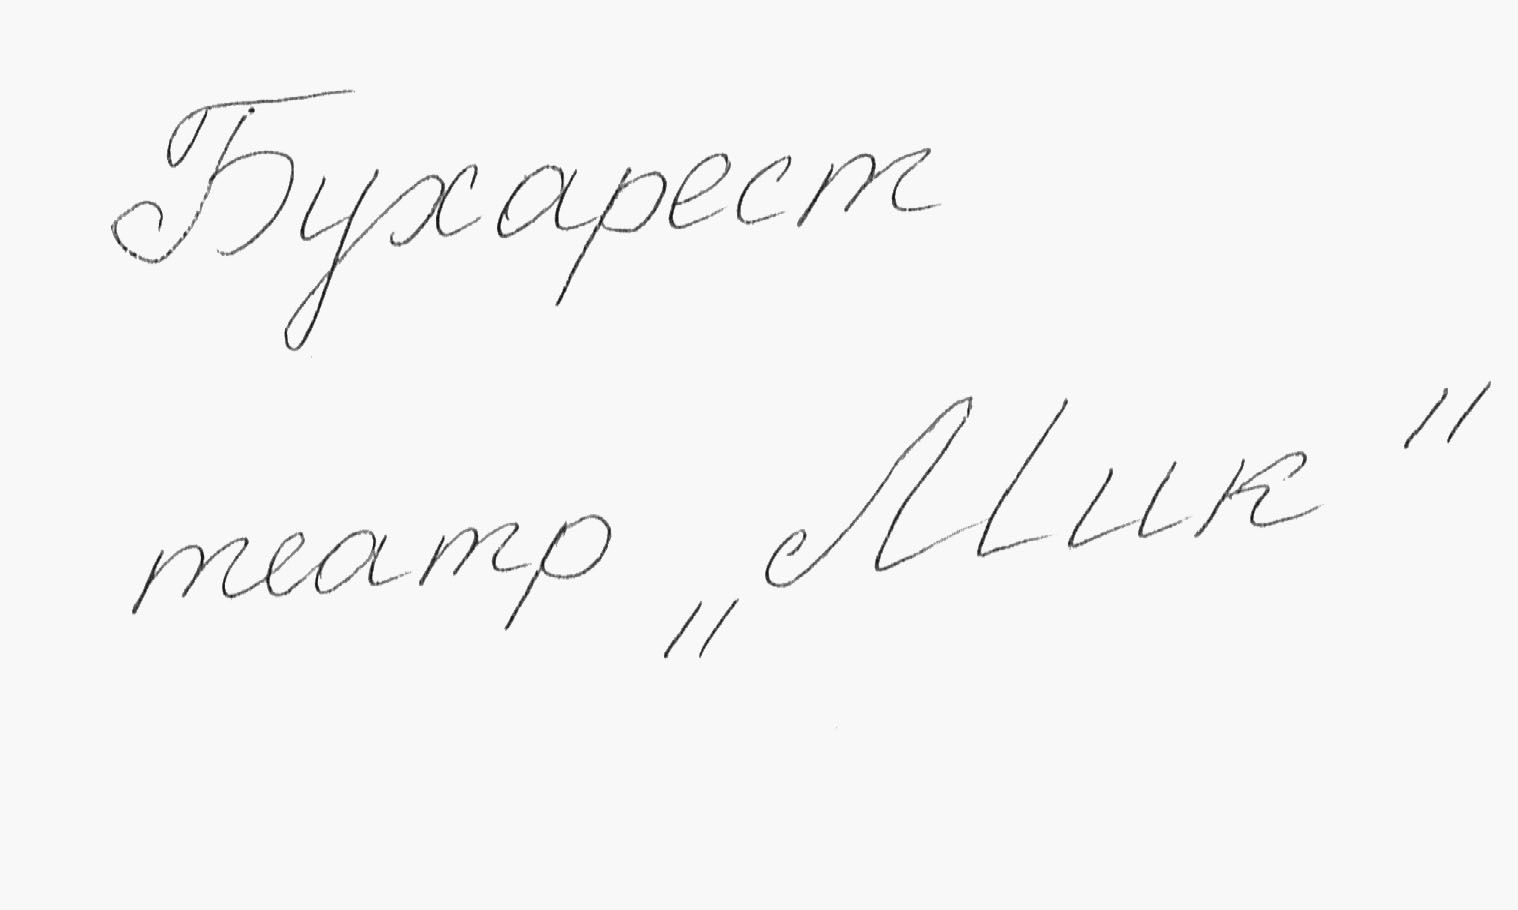 Бухарест
театр „Мик"